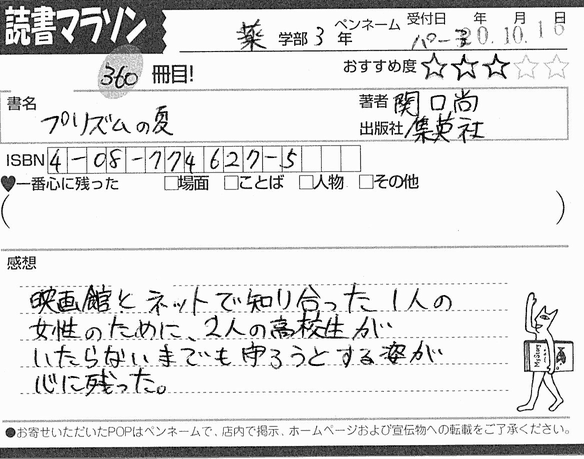 読書マラソン
薬学部 3年 ペンネーム パーマ 受付日 年 月 日
20.10.16
360冊目!
おすすめ度 ★★★☆☆
書名 プリズムの夏
著者 関口尚
出版社 集英社
ISBN 4-08-774627-5
♥一番心に残った □場面 □ことば □人物 □その他
( )
感想
映画館とネットで知り合った1人の
女性のために、2人の高校生が
いたらないまでも守ろうとする姿が
心に残った。
●お寄せいただいたPOPはペンネームで、店内で掲示、ホームページおよび宣伝物への転載をご了承ください。